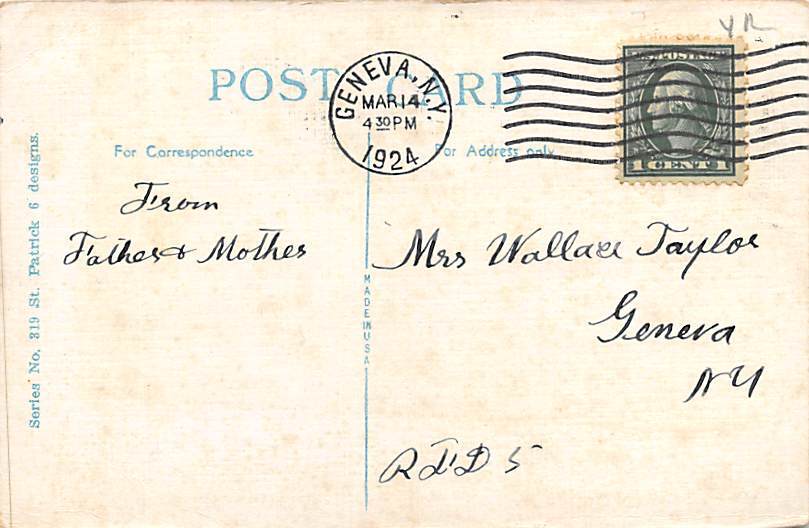 YR
POST CARD
GENEVA, N.Y.
MAR 14
4 30 PM
1924
U.S. POSTAGE
1 CENT 1
For Correspondence
For Address only
From
Father & Mother
Mrs Wallace Taylor
Geneva
NY
RFD 5
MADE IN USA
Series No. 319 St. Patrick 6 designs.